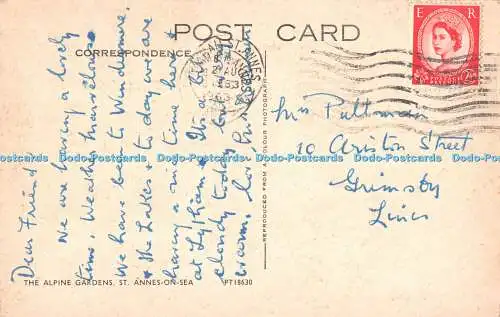 POST CARD
CORRESPONDENCE
E R
Dear Friend
We are having a lovely
time. Weather marvellous
We have been to Windermere
& the Lakes & to day we are
having a nice time here
at Lytham. It's a
cloudy today but
warm.
LYTHAM ST ANNES
AUG
1953
POSTAGE REVENUE
2½
Mrs Pultman
10 Ariston Street
Grimsby
Lincs
REPRODUCED FROM A COLOUR PHOTOGRAPH
THE ALPINE GARDENS, ST. ANNES-ON-SEA PT18630
Dodo-Postcards Dodo-Postcards Dodo-Postcards Dodo-Postcards Dodo-Postcards